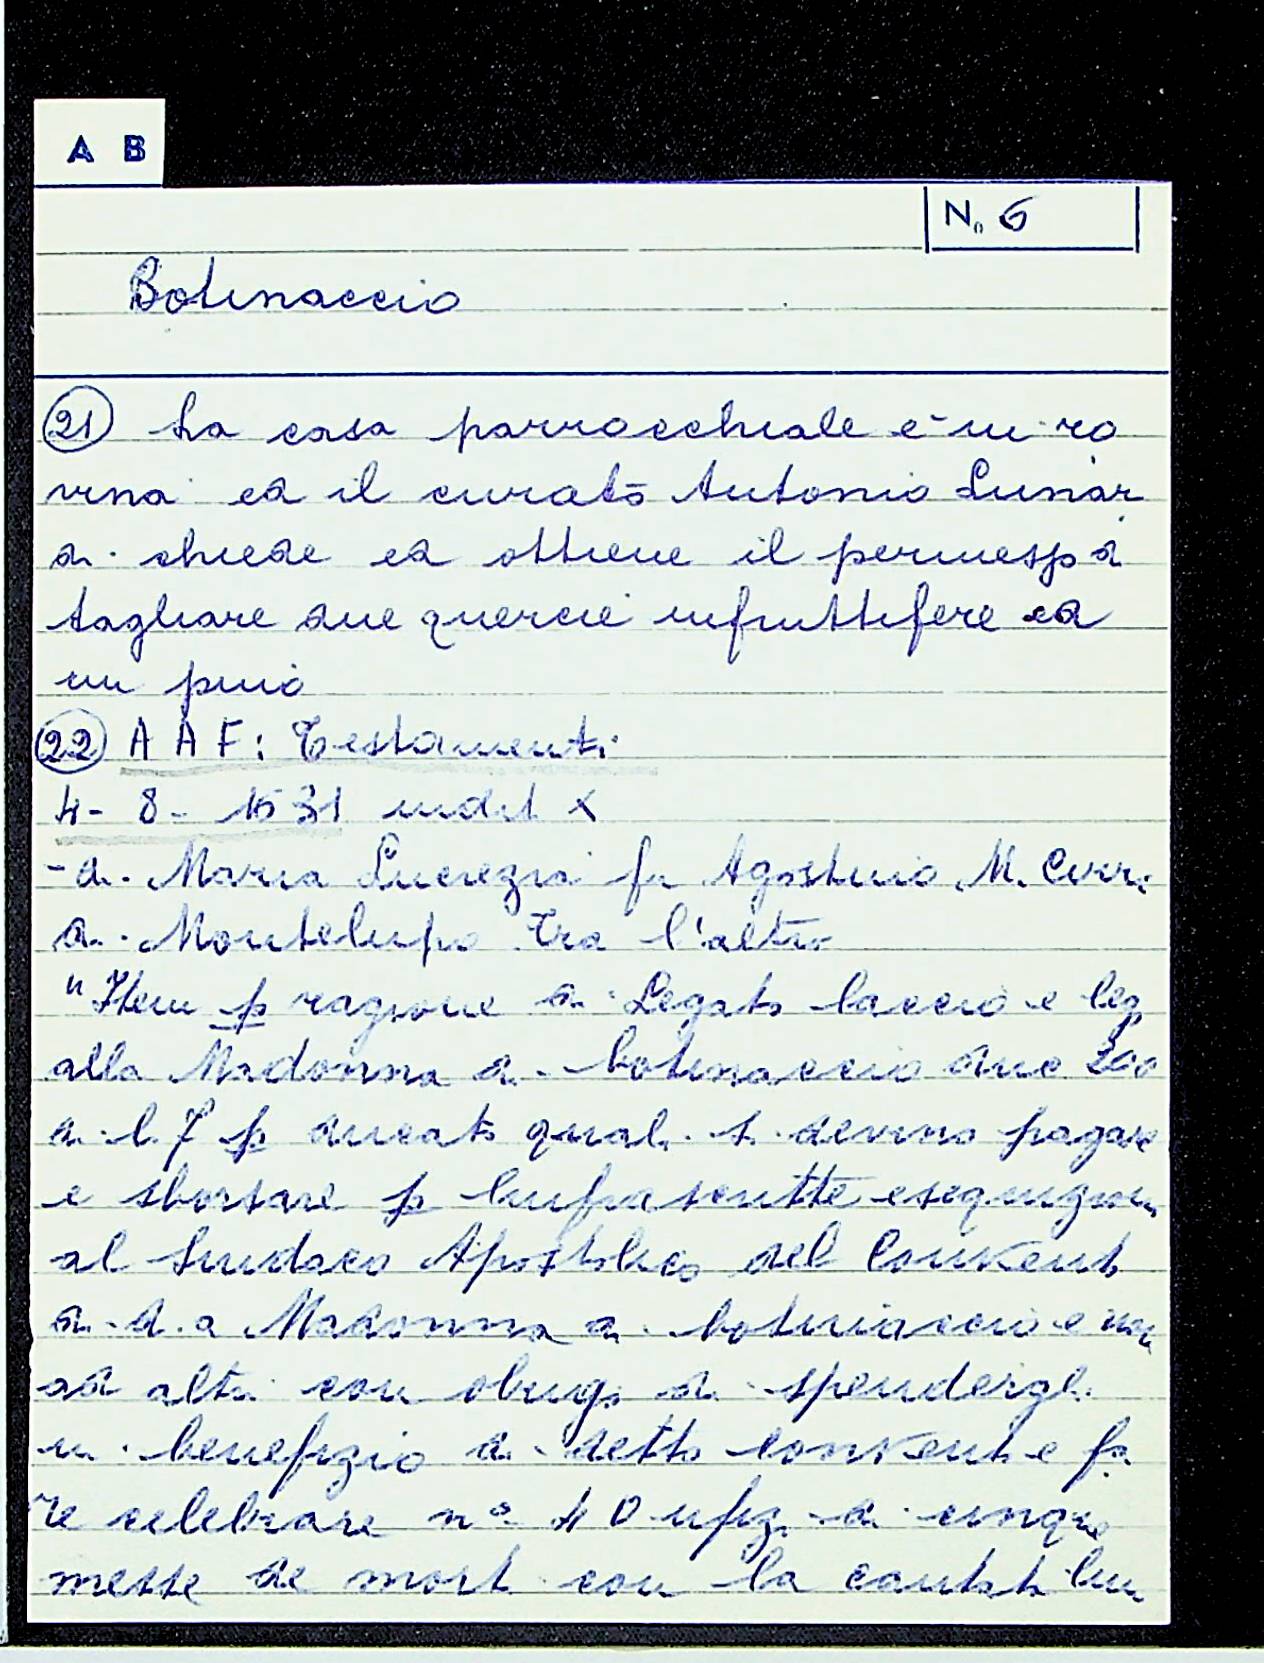 A B
N. 6
Botinaccio
21 La casa parrocchiale è in ro
vina ed il curato Antonio Lunar
di chiede ed ottiene il permesso di
tagliare due quercie infruttifere ed
un pino
22 A A F: Testamenti
4 - 8 - 1531 indit X
- di Maria Lucrezia fu Agostino M.
di Montelupo tra l'altro
"Item p ragione di Legato laccio e leg
alla Madonna di botinaccio duc 200
di l. 7 p ducato quali si devino pagare
e sborsare p linfrascritte
al Sindaco Apostolico del Convento
di d.a Madonna di botinaccio e non
ad altri con obligo di spendergli
in benefizio di detto convento e fa
re celebrare n° 40 ufiz di cinque
messe de morti con la